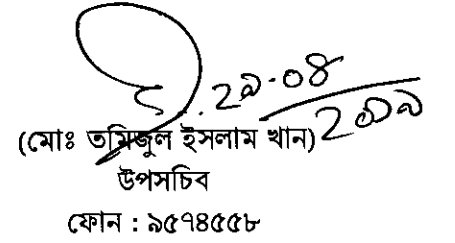 ২৯-০৪
২০১৯
(মোঃ তমিজুল ইসলাম খান)
উপসচিব
ফোন : ৯৫৭৪৫৫৮